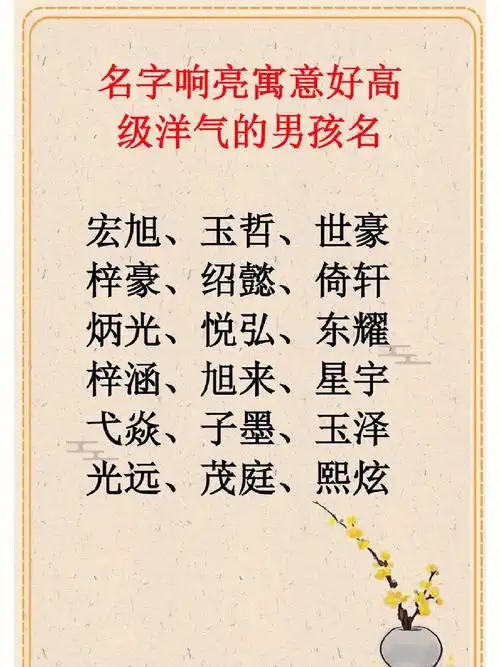 名字响亮寓意好高
级洋气的男孩名
宏旭、玉哲、世豪
梓豪、绍懿、倚轩
炳光、悦弘、东耀
梓涵、旭来、星宇
弋焱、子墨、玉泽
光远、茂庭、熙炫